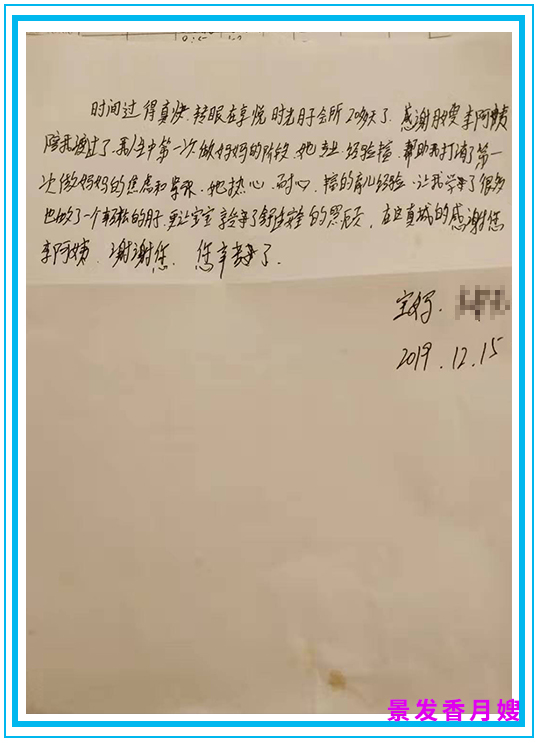 时间过得真快，转眼在享悦时光月子会所20多天了，感谢月嫂李阿姨
陪我渡过了我人生中第一次做妈妈的阶段，她专业、经验，帮助我打消了第一
次做妈妈的焦虑和，她热心、耐心、的育儿经验，让我学到了很多
也做了一个轻松的月子，更让宝宝享受到了舒适的照顾，在此真诚的感谢您
李阿姨，谢谢您，您辛苦了。
宝妈：
2019.12.15
景发香月嫂